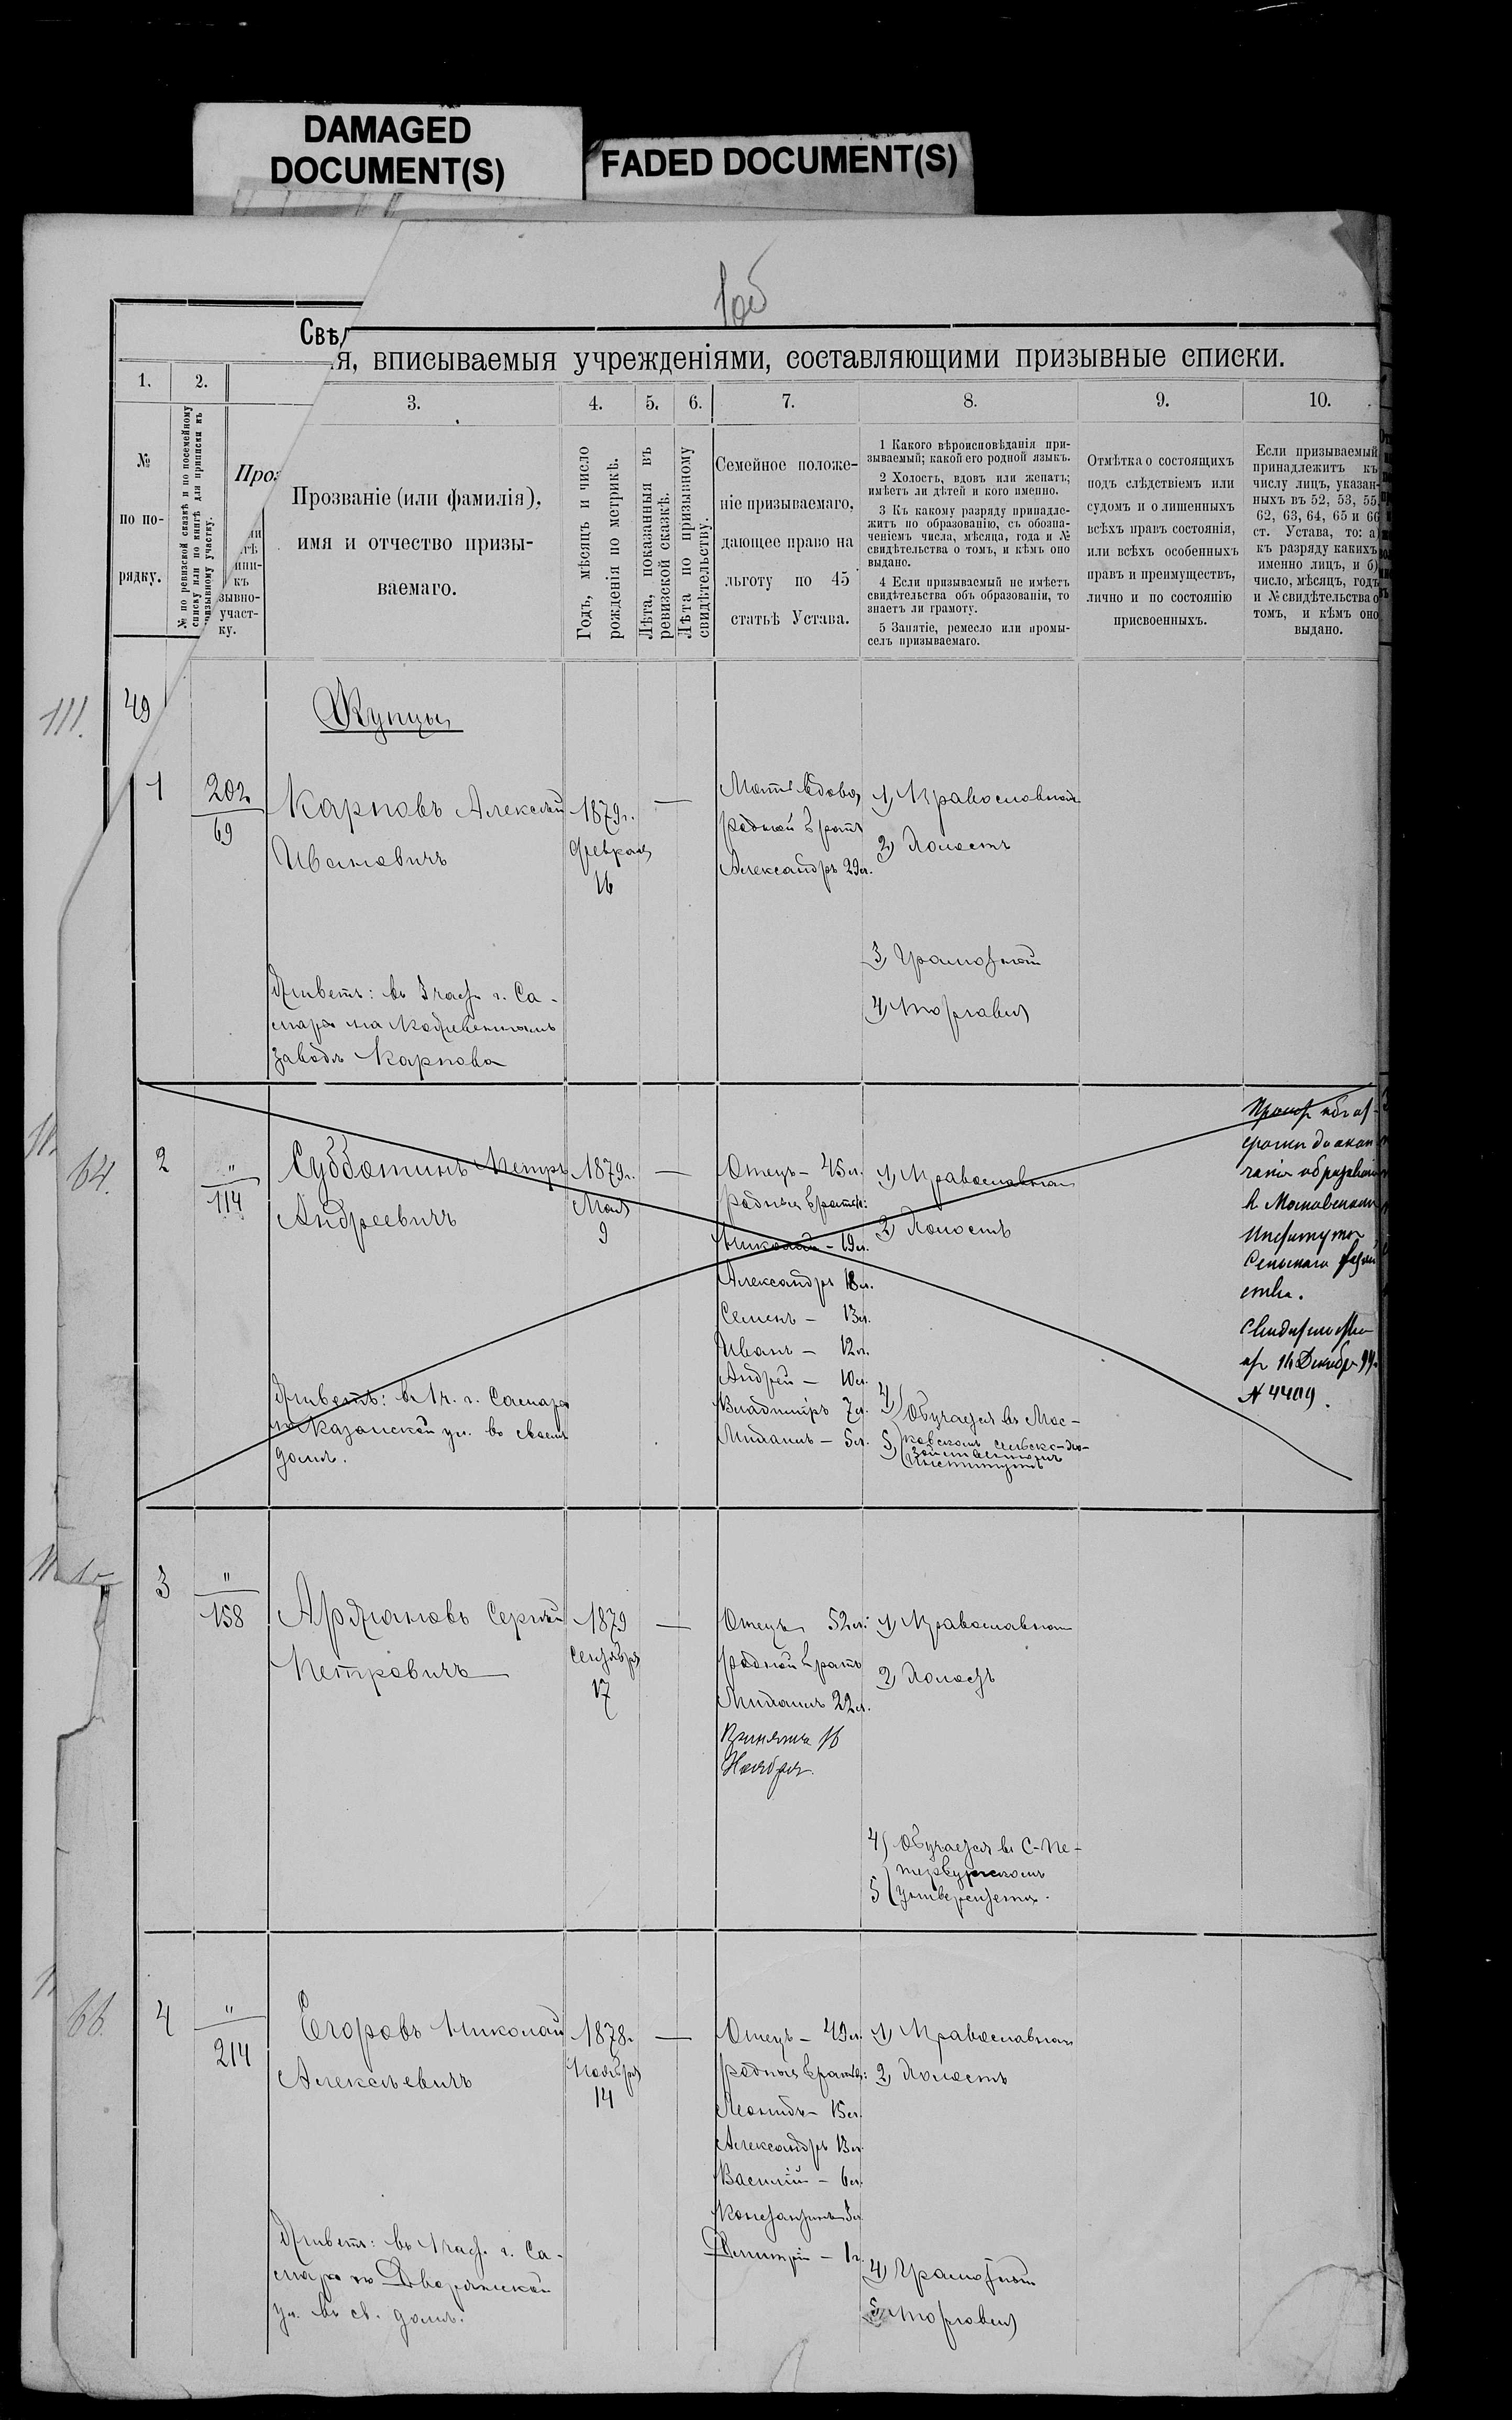 DAMAGED
DOCUMENT(S)
FADED DOCUMENT(S)
1об
Свѣд
ія, вписываемыя учрежденіями, составляющими призывные списки.
1. 2. 3. 4. 5. 6. 7. 8. 9. 10.
№
по по-
рядку.
№ по ревизской сказкѣ и по посемейному
списку или по книгѣ для приписки къ
призывному участку.
Проз
зывно-
участ-
ку.
Прозваніе (или фамилія),
имя и отчество призы-
ваемаго.
Годъ, мѣсяцъ и число
рожденія по метрикѣ.
Лѣта, показанныя въ
ревизской сказкѣ.
Лѣта по призывному
свидѣтельству.
Семейное положе-
ніе призываемаго,
дающее право на
льготу по 45
статьѣ Устава.
1 Какого вѣроисповѣданія при-
зываемый; какой его родной языкъ.
2 Холостъ, вдовъ или женатъ;
имѣетъ ли дѣтей и кого именно.
3 Къ какому разряду принадле-
житъ по образованію, съ обозна-
ченіемъ числа, мѣсяца, года и №
свидѣтельства о томъ, и кѣмъ оно
выдано.
4 Если призываемый не имѣетъ
свидѣтельства объ образованіи, то
знаетъ ли грамоту.
5 Занятіе, ремесло или промы-
селъ призываемаго.
Отмѣтка о состоящихъ
подъ слѣдствіемъ или
судомъ и о лишенныхъ
всѣхъ правъ состоянія,
или всѣхъ особенныхъ
правъ и преимуществъ,
лично и по состоянію
присвоенныхъ.
Если призываемый
принадлежитъ къ
числу лицъ, указан-
ныхъ въ 52, 53, 55,
62, 63, 64, 65 и 66
ст. Устава, то: а)
къ разряду какихъ
именно лицъ, и б)
число, мѣсяцъ, годъ
и № свидѣтельства о
томъ, и кѣмъ оно
выдано.
111.
49
Купцы
1
202
69
Карповъ Алексѣй
Ивановичъ
1879г.
Февраля
16
—
Мать вдова,
родной братъ
Александръ 29л.
1) Православный
2) Холостъ
3) Грамотный
4) Торговля
Живетъ: въ 3 част. г. Са-
марѣ на Кожевенномъ
заводѣ Карпова
64.
2
"
114
Субботинъ Петръ
Андреевичъ
1879г.
Мая
9
—
Отецъ - 45л.
родные братья:
Николай - 19л.
Александръ 18л.
Семенъ - 13л.
Иванъ - 12л.
Андрей - 10л.
Владиміръ 7л.
Михаилъ - 5л.
1) Православный
2) Холостъ
4)
5) Обучается въ Мос-
ковскомъ сельско-хо-
зяйственномъ
Институтѣ
Живетъ: въ 1 ч. г. Самары
по Казанской ул. въ своемъ
домѣ.
срочки до окон-
чанія образованія
в Московскомъ
Институтѣ
Сельскаго хозяй
ства.
Свидѣтельство
от 16 Декабр 99г.
№ 4409.
3
"
158
Аржановъ Сергѣй
Петровичъ
1879
Сентября
17
—
Отецъ 52л.
родной братъ
Михаилъ 22л.
16
Ноября.
1) Православный
2) Холостъ
4) Обучается въ С-Пе-
тербургскомъ
5) Университетѣ.
66.
4
"
214
Егоровъ Николай
Алексѣевичъ
1878г.
Ноября
14
—
Отецъ - 49л.
родные братья:
Леонидъ - 15л.
Александръ 13л.
Василій - 6л.
Константинъ 3л.
Дмитрій - 1г.
1) Православный
2) Холостъ
4) Грамотный
5) Торговля
Живетъ: въ 1 част. г. Са-
марѣ по Дворянской
ул. въ св. домѣ.